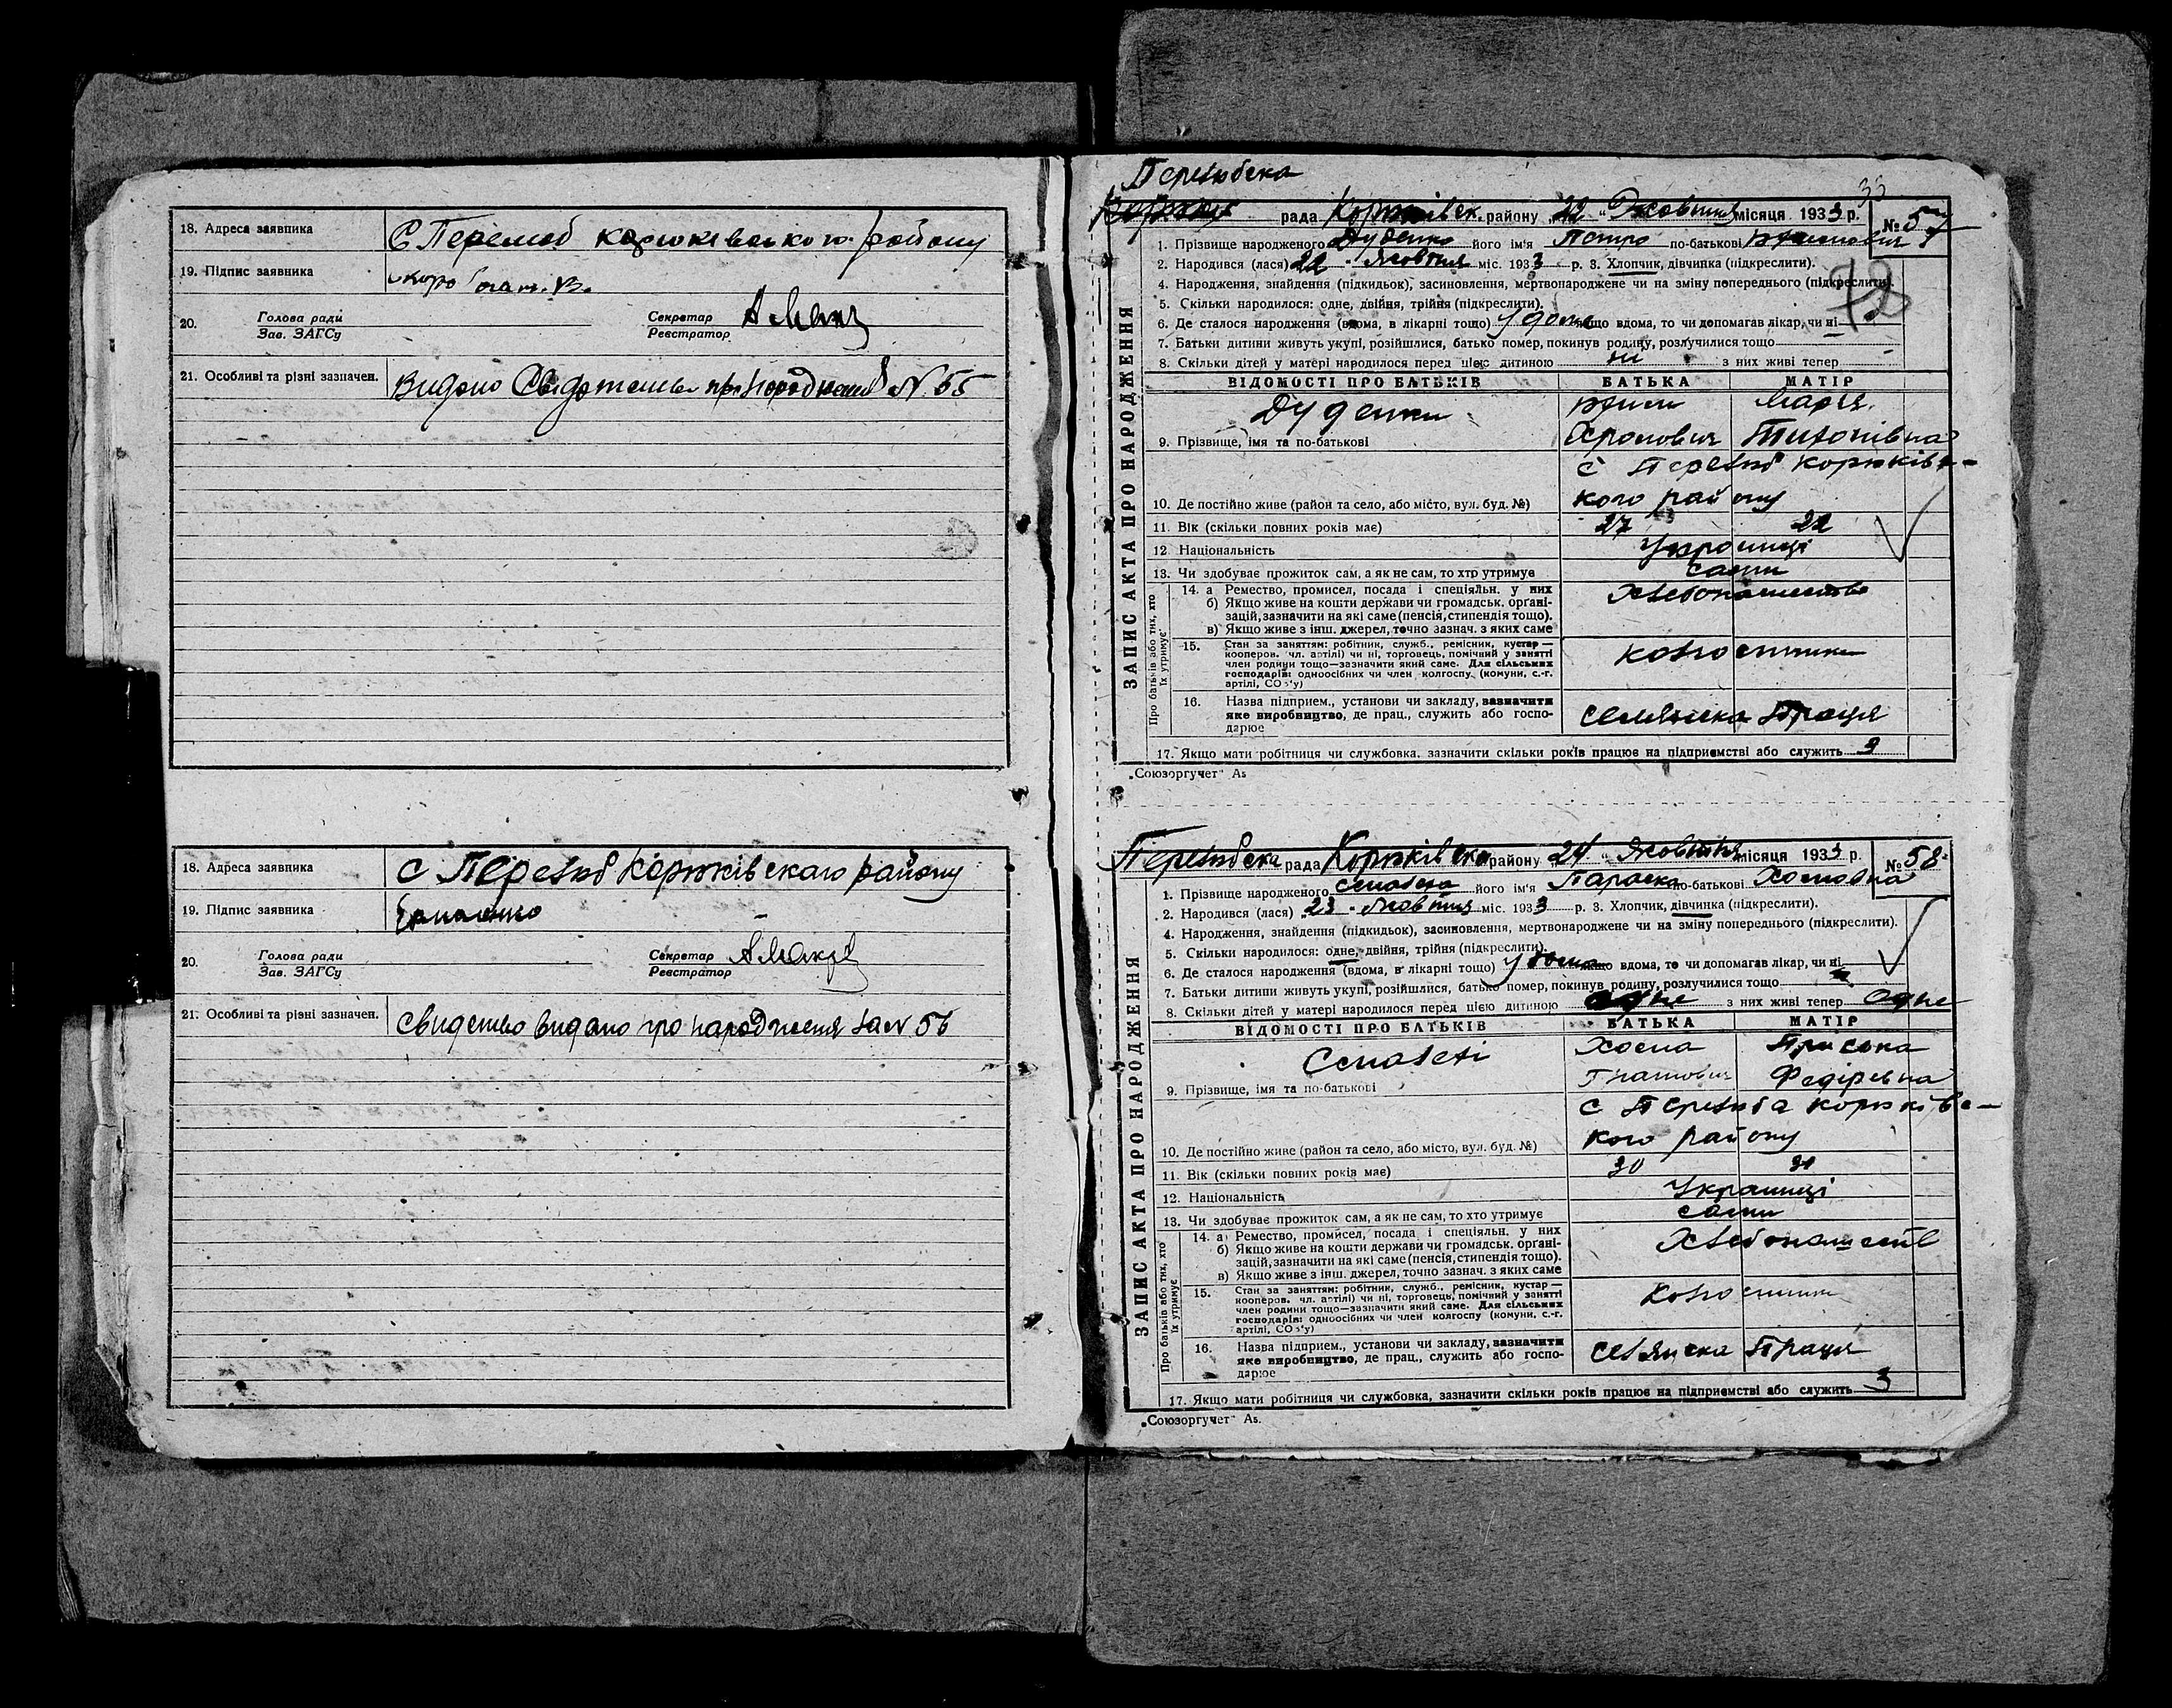 18. Адреса заявника
С Перелюб корюківського району
19. Підпис заявника
20. Голова ради Секретар
Зав. ЗАГСу Реєстратор
21. Особливі та різні зазначен. Видано № 55
18. Адреса заявника С Перелюб Корюківскаго району
19. Підпис заявника Єрмоленко
20. Голова ради Секретар
Зав. ЗАГСу Реєстратор
21. Особливі та різні зазначен. видано про народження за № 56
33
Перелюбска
рада Корюківск. району „22“ Жовтня місяця 1933 р. № 57
ЗАПИС АКТА ПРО НАРОДЖЕННЯ
1. Прізвище народженого Дуденко його ім'я Петро по-батькові
2. Народився (лася) 22 Жовтня міс. 1933 р. 3. Хлопчик, дівчинка (підкреслити).
4. Народження, знайдення (підкидьок), засиновлення, мертвонароджене чи на зміну попереднього (підкреслити).
5. Скільки народилося: одне, двійня, трійня (підкреслити).
6. Де сталося народження (вдома, в лікарні тощо) у дома якщо вдома, то чи допомагав лікар, чи ні
7. Батьки дитини живуть укупі, розійшлися, батько помер, покинув родину, розлучилися тощо
8. Скільки дітей у матері народилося перед цією дитиною ні з них живі тепер
ВІДОМОСТІ ПРО БАТЬКІВ БАТЬКА МАТІР
Дуденки Марія
9. Прізвище, імя та по-батькові Тихонівна
с Перелюб Корюківс-
10. Де постійно живе (район та село, або місто, вул. буд. №) кого району
11. Вік (скільки повних років має) 27 22
12 Національність Українці
13. Чи здобуває прожиток сам, а як не сам, то хто утримує сами
Про батьків або тих, хто їх утримує
14. а Ремество, промисел, посада і спеціяльн. у них Хлебопашество
б) Якщо живе на кошти держави чи громадськ. органі-
зацій, зазначити на які саме (пенсія, стипендія тощо).
в) Якщо живе з інш. джерел, точно зазнач. з яких саме
15. Стан за заняттям: робітник, служб., ремісник, кустар—
кооперов. чл. артілі) чи ні, торговець, помічний у занятті
член родини тощо—зазначити який саме. Для сільських
господарів: одноосібних чи член колгоспу (комуни, с.-г.
артілі, СОЗ'у)
колгоспники
16. Назва підприєм., установи чи закладу, зазначити
яке виробництво, де прац., служить або госпо-
дарює
селянска Праця
17. Якщо мати робітниця чи службовка, зазначити скільки років працює на підприємстві або служить 3
„Союзоргучет“ А5
Перелюбска рада Корюківска району „24“ Жовтня місяця 1933 р. № 58
ЗАПИС АКТА ПРО НАРОДЖЕННЯ
1. Прізвище народженого його ім'я Параска по-батькові Хомовна
2. Народився (лася) 23 Жовтня міс. 1933 р. 3. Хлопчик, дівчинка (підкреслити).
4. Народження, знайдення (підкидьок), засиновлення, мертвонароджене чи на зміну попереднього (підкреслити).
5. Скільки народилося: одне, двійня, трійня (підкреслити).
6. Де сталося народження (вдома, в лікарні тощо) у дома якщо вдома, то чи допомагав лікар, чи ні
7. Батьки дитини живуть укупі, розійшлися, батько помер, покинув родину, розлучилися тощо
8. Скільки дітей у матері народилося перед цією дитиною одне з них живі тепер одне
ВІДОМОСТІ ПРО БАТЬКІВ БАТЬКА МАТІР
Хома Приська
9. Прізвище, імя та по-батькові Гнатович Федіревна
с Перелюба корюківс-
10. Де постійно живе (район та село, або місто, вул. буд. №) кого району
11. Вік (скільки повних років має) 30
12. Національність Українці
13. Чи здобуває прожиток сам, а як не сам, то хто утримує сами
Про батьків або тих, хто їх утримує
14. а) Ремество, промисел, посада і спеціяльн. у них
б) Якщо живе на кошти держави чи громадськ. органі-
зацій, зазначити на які саме (пенсія, стипендія тощо).
в) Якщо живе з інш. джерел, точно зазнач. з яких саме
15. Стан за заняттям: робітник, служб., ремісник, кустар—
кооперов. чл. артілі) чи ні, торговець, помічний у занятті
член родини тощо—зазначити який саме. Для сільських
господарів: одноосібних чи член колгоспу (комуни, с.-г.
артілі, СОЗ'у)
колгоспники
16. Назва підприєм., установи чи закладу, зазначити
яке виробництво, де прац., служить або госпо-
дарює
селянска Праця
17. Якщо мати робітниця чи службовка, зазначити скільки років працює на підприємстві або служить 3
„Союзоргучет“ А5.